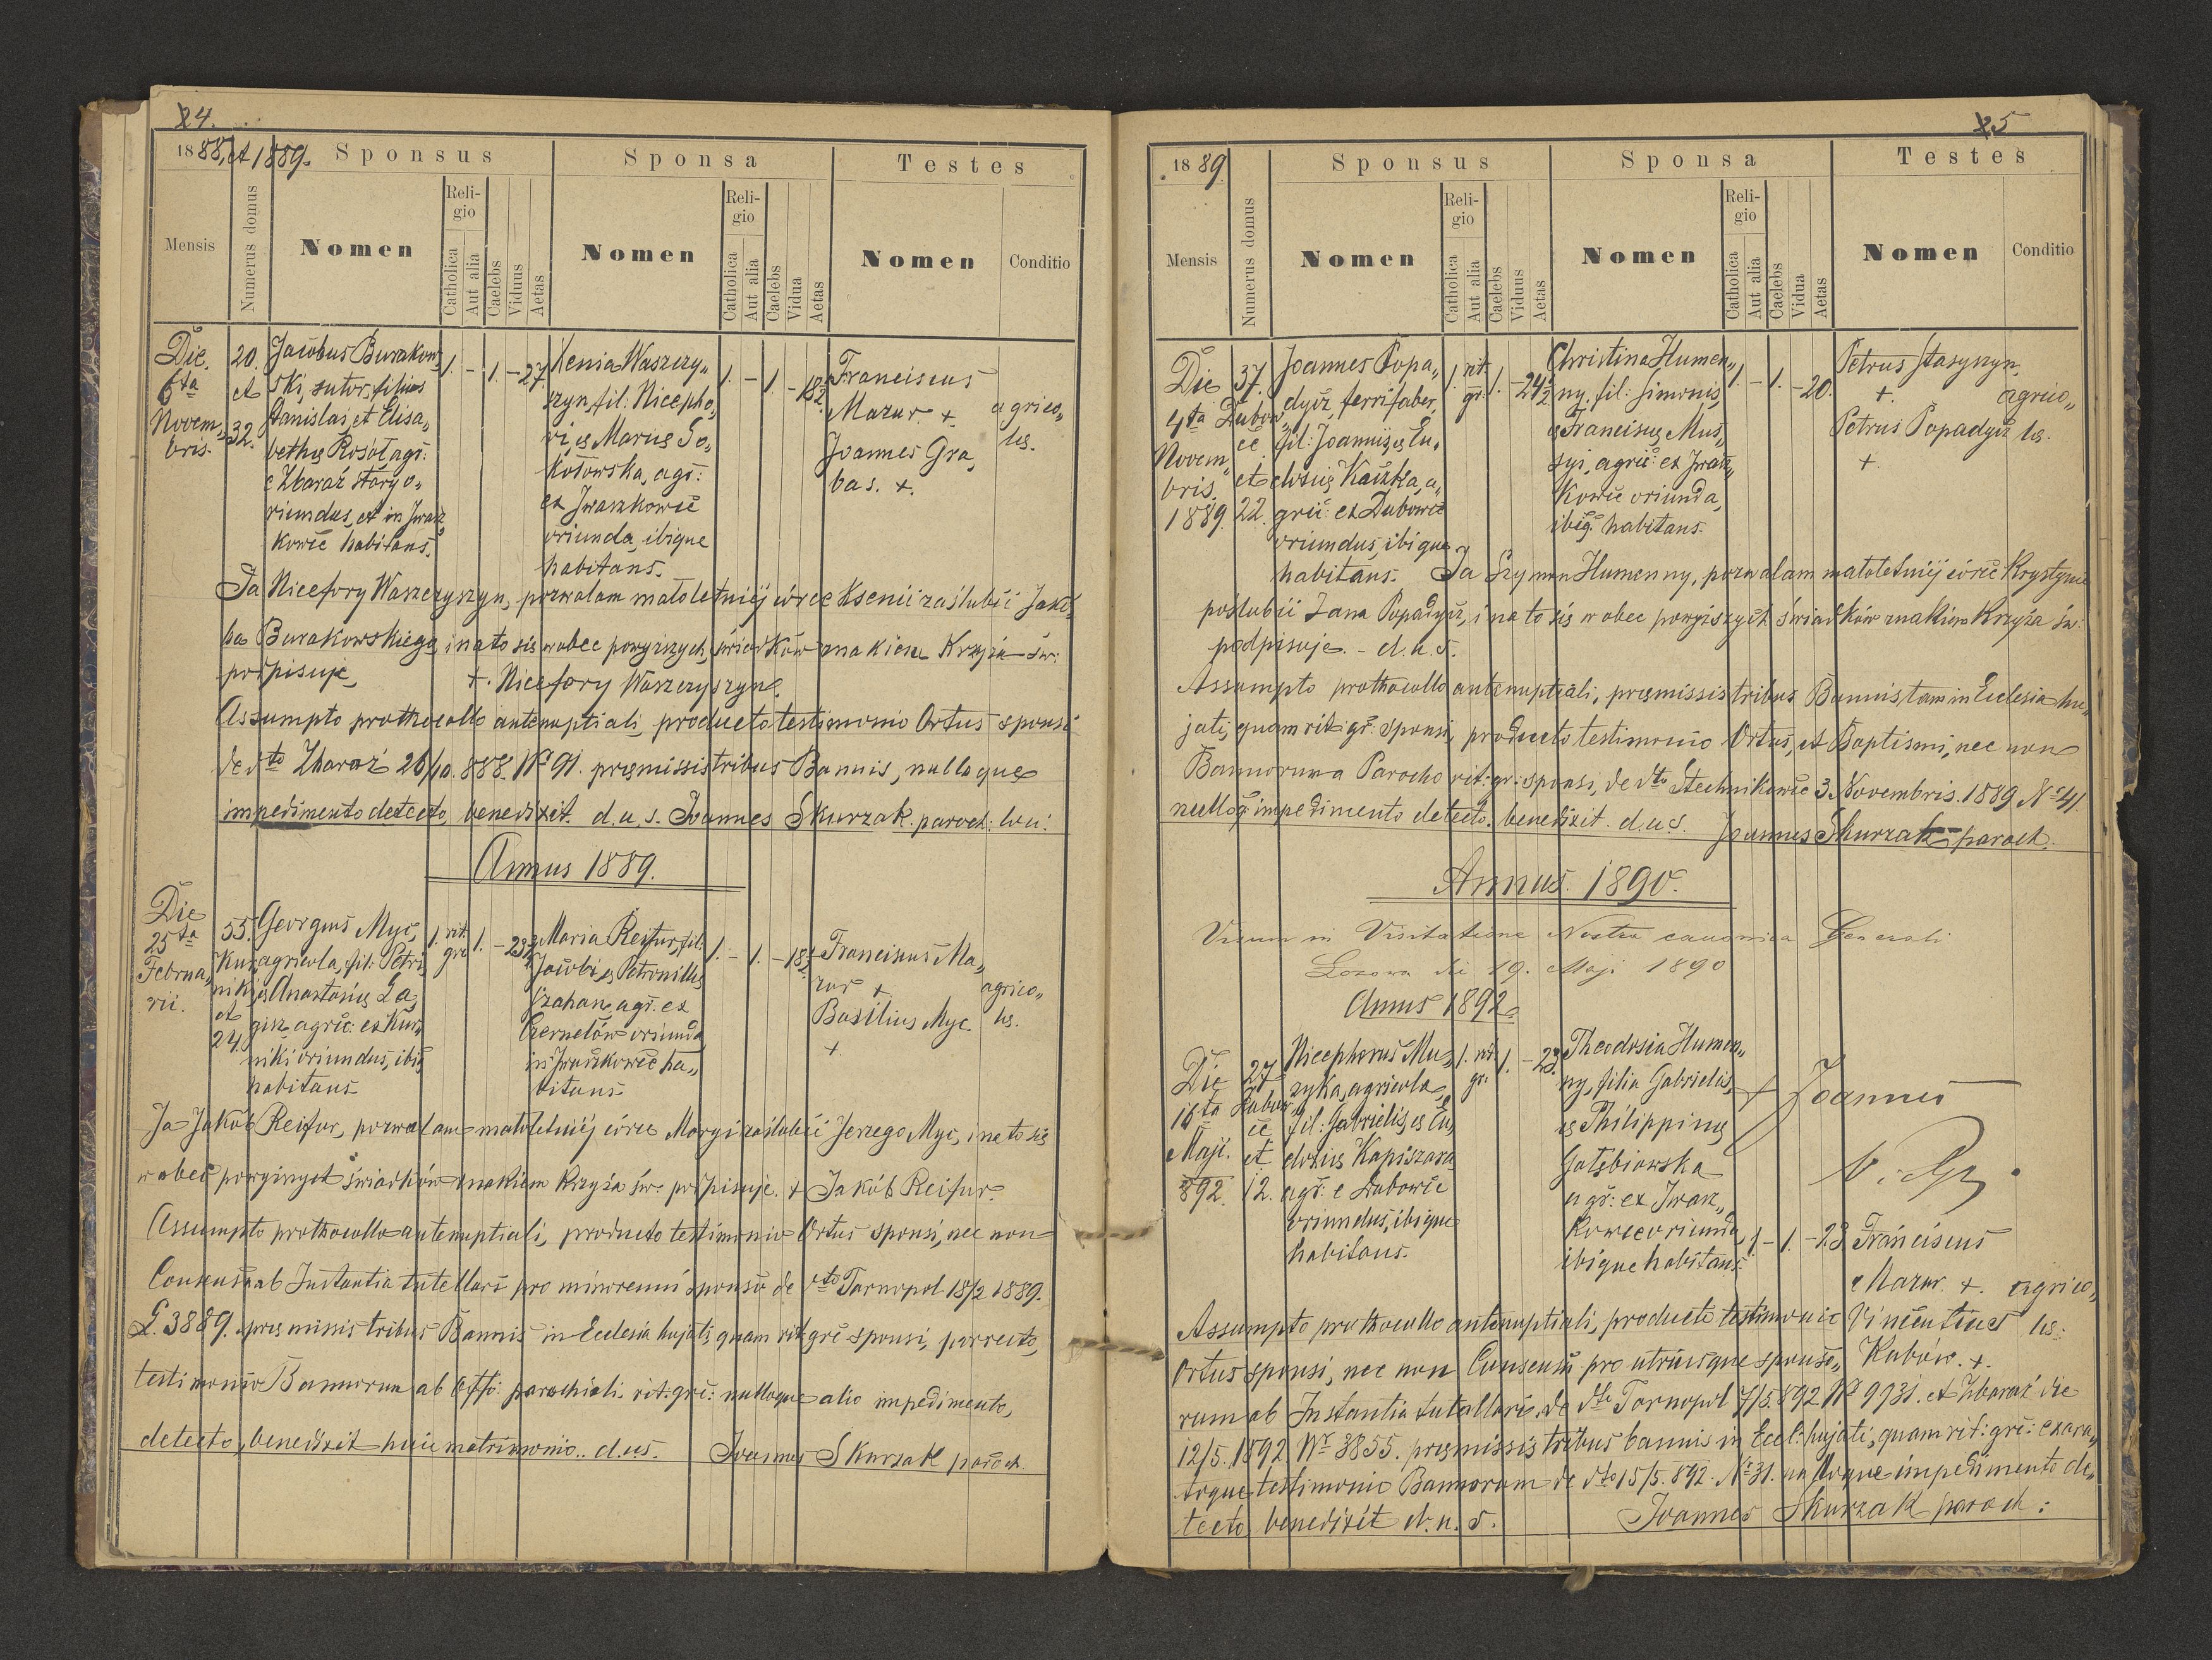 24.
1888, et 1889.
Sponsus
Sponsa
Testes
Mensis
Numerus domus
Nomen
Reli-
gio
Catholica
Aut alia
Caelebs
Viduus
Aetas
Nomen
Reli-
gio
Catholica
Aut alia
Caelebs
Vidua
Aetas
Nomen
Conditio
Die
6ta
Novem„
bris.
20.
et
32.
Jacobus Burakow„
ski, sutor, filius
Stanislai et Elisa„
bethę Rosół agr:
e Zbaraż stary o„
riundus, et in Iwasz
kowce habitans.
1. - 1. - 27.
Xenia Waszczy„
szyn, fil: Nicepho„
ri, et Marię So„
kołowska, agr:
ex Iwaszkowce
oriunda, ibique
habitans.
1. - 1. -
Franciscus
Mazur +
Joannes Gra„
bas. +.
agrico„
lę.
Ja Nicefory Waszczyszyn, pozwalam małoletniéj córce Ksenii zaślubić Jakó„
ba Burakowskiego, i na to się w obec powyższych świadków znakiem Krzyża św:
podpisuję
+. Nicefory Waszczyszyn.
Assumpto prothocollo antenuptiali, producto testimonio Ortus sponsi
de dto Zbaraż 26/10. 888. No 91. pręmissis tribus Bannis, nulloque
impedimento detecto, benedixit d.u.s. Joannes Skurzak. paroch: loci.
Annus 1889.
Die
25ta
Februa„
rii.
55.
Kur„
niki
et
24.
Georgius Myc,
agricola, fil: Petri
et Anastasię Ła„
gisz agric: ex Kur„
niki oriundus, ibiq
habitans
1. rit.
gr. 1. - 23
Maria Reifur, fil:
Jacobi et Petronillę
Szahan, agr. ex
Czernelów oriunda
in Iwaszkowce ha„
bitans
1. - 1. - 18
Franciscus Ma„
zur +
Basilius Myc.
+.
agrico„
lę.
Ja Jakób Reifur, pozwalam małoletniéj córce Maryi zaślubić Jerzego Myc, i na to się
w obec powyższych świadków znakiem Krzyża św: podpisuję. + Jakób Reifur.
Assumpto prothocollo antenuptiali, producto testimonio Ortus sponsi, nec non
Consensu ab Instantia tutellari pro minorenni sponso de dto Tarnopol 18/2 1889.
L. 3889. pręmissis tribus Bannis in Ecclesia hujati, quam rit gre sponsi, porrecto,
testimonio Bannorum ab Offo: parochiali rit: gre: nulloque alio impedimento,
detecto, benedixit huic matrimonio.. d.u.s. Joannes Skurzak paroch.
25
1889.
Sponsus
Sponsa
Testes
Mensis
Numerus domus
Nomen
Reli-
gio
Catholica
Aut alia
Caelebs
Viduus
Aetas
Nomen
Reli-
gio
Catholica
Aut alia
Caelebs
Vidua
Aetas
Nomen
Conditio
Die
4ta
Novem„
bris.
1889.
37.
Dubow„
ce
et
22.
Joannes Popa„
dycz, ferrifaber,
fil: Joannis, et Eu„
doxię Kaszka, a„
gric: ex Dubowce
oriundus, ibique
habitans.
1. rit.
gr. 1. - 24½
Christina Humen„
ny. fil: Simonis,
et Franciscę Mus„
syj, agric: ex Iwasz„
kowce oriunda,
ibiq. habitans.
1. - 1. - 20.
Petrus Stasyszyn
+.
Petrus Popadycz
+.
agrico„
lę.
Ja Szymon Humenny, pozwalam małoletniéj córce Krystynie
poślubić Jana Popadycz, i na to się w obec powyższych świadków znakiem Krzyża św:
podpisuję. - d.u.s.
Assumpto prothocollo antenuptiali, pręmissis tribus Bannis, tam in Ecclesia hu„
jati, quam rit gr: sponsi, producto testimonio Ortus, et Baptismi, nec non
Bannorum a Parocho rit: gr: sponsi, de dto Stechnikowce 3. Novembris. 1889 No 41.
nulloq impedimento detecto. benedixit. d.u.s. Joannes Skurzak paroch.
Annus. 1890.
Visum in Visitatione Nostra canonica Generali
Łozowa die 19. Maji 1890
Annus 1892.
+ Joannes
Die
16ta
Maji.
892.
27
Dubow„
ce
et
12.
Nicephorus Mu„
zyka, agricola,
fil: Gabrielis, et Eu„
doxię Kapiszara
agr: e Dubowce
oriundus, ibique
habitans.
1. rit.
gr. 1. - 23.
Theodosia Humen„
ny, filia Gabrielis,
et Philippinę
Gołębiowska
agr: ex Iwasz„
kowce oriunda,
ibique habitans.
1. - 1. - 23
Franciscus
Mazur. +.
Vincentius
Kubów. +.
agrico„
lę.
Assumpto prothocollo antenuptiali, producto testimonio
Ortus sponsi, nec non Consensu pro utrisque sponso„
rum ab Instantia tutellari. de dto Tarnopol 7/5. 892 No 9931. et Zbaraż die
12/5. 1892 Nr 3855. pręmissis tribus bannis in Eccl: hujati, quam rit: gre: exara„
toque testimonio Bannorum de dto 15/5. 892. No 31. nulloque impedimento de„
tecto, benedixit d.u.s. Joannes Skurzak paroch: